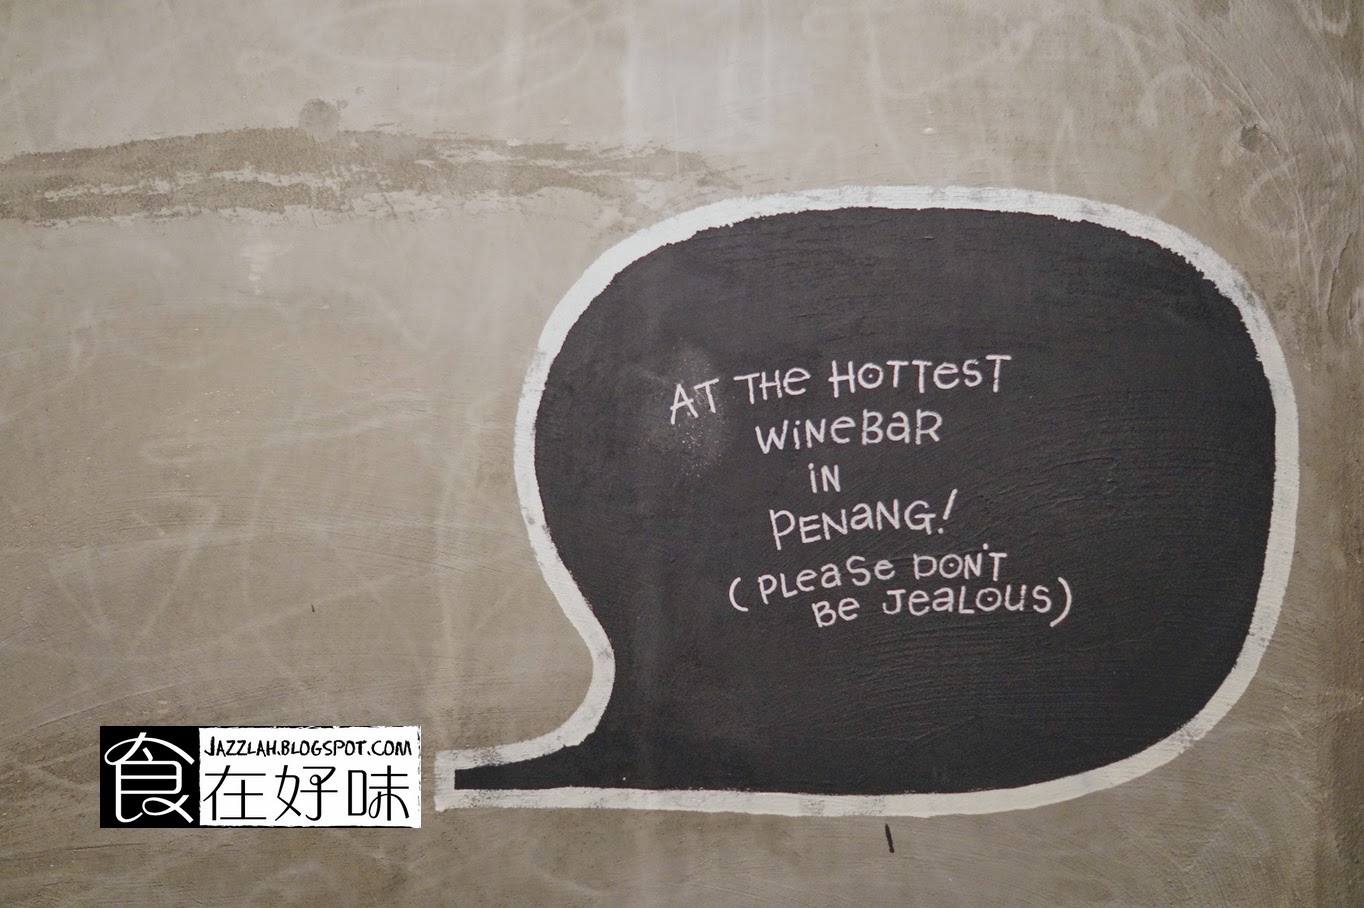 AT THE HOTTEST
WINEBAR
IN
PENANG!
(PLEASE DON'T
BE JEALOUS)
JAZZLAH.BLOGSPOT.COM
食在好味